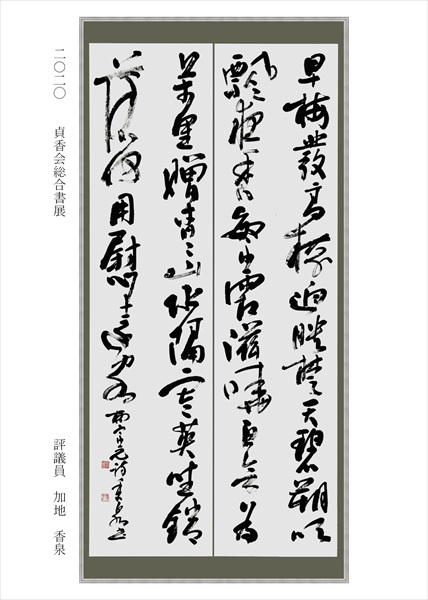 早梅發高樹迥映楚天碧朔吹
飄夜香繁霜滋曉白欲為
萬里贈杳杳山水隔寒英坐銷
落何用慰遠客 柳宗元詩 香泉書
二〇二〇 貞香会総合書展
評議員 加地 香泉